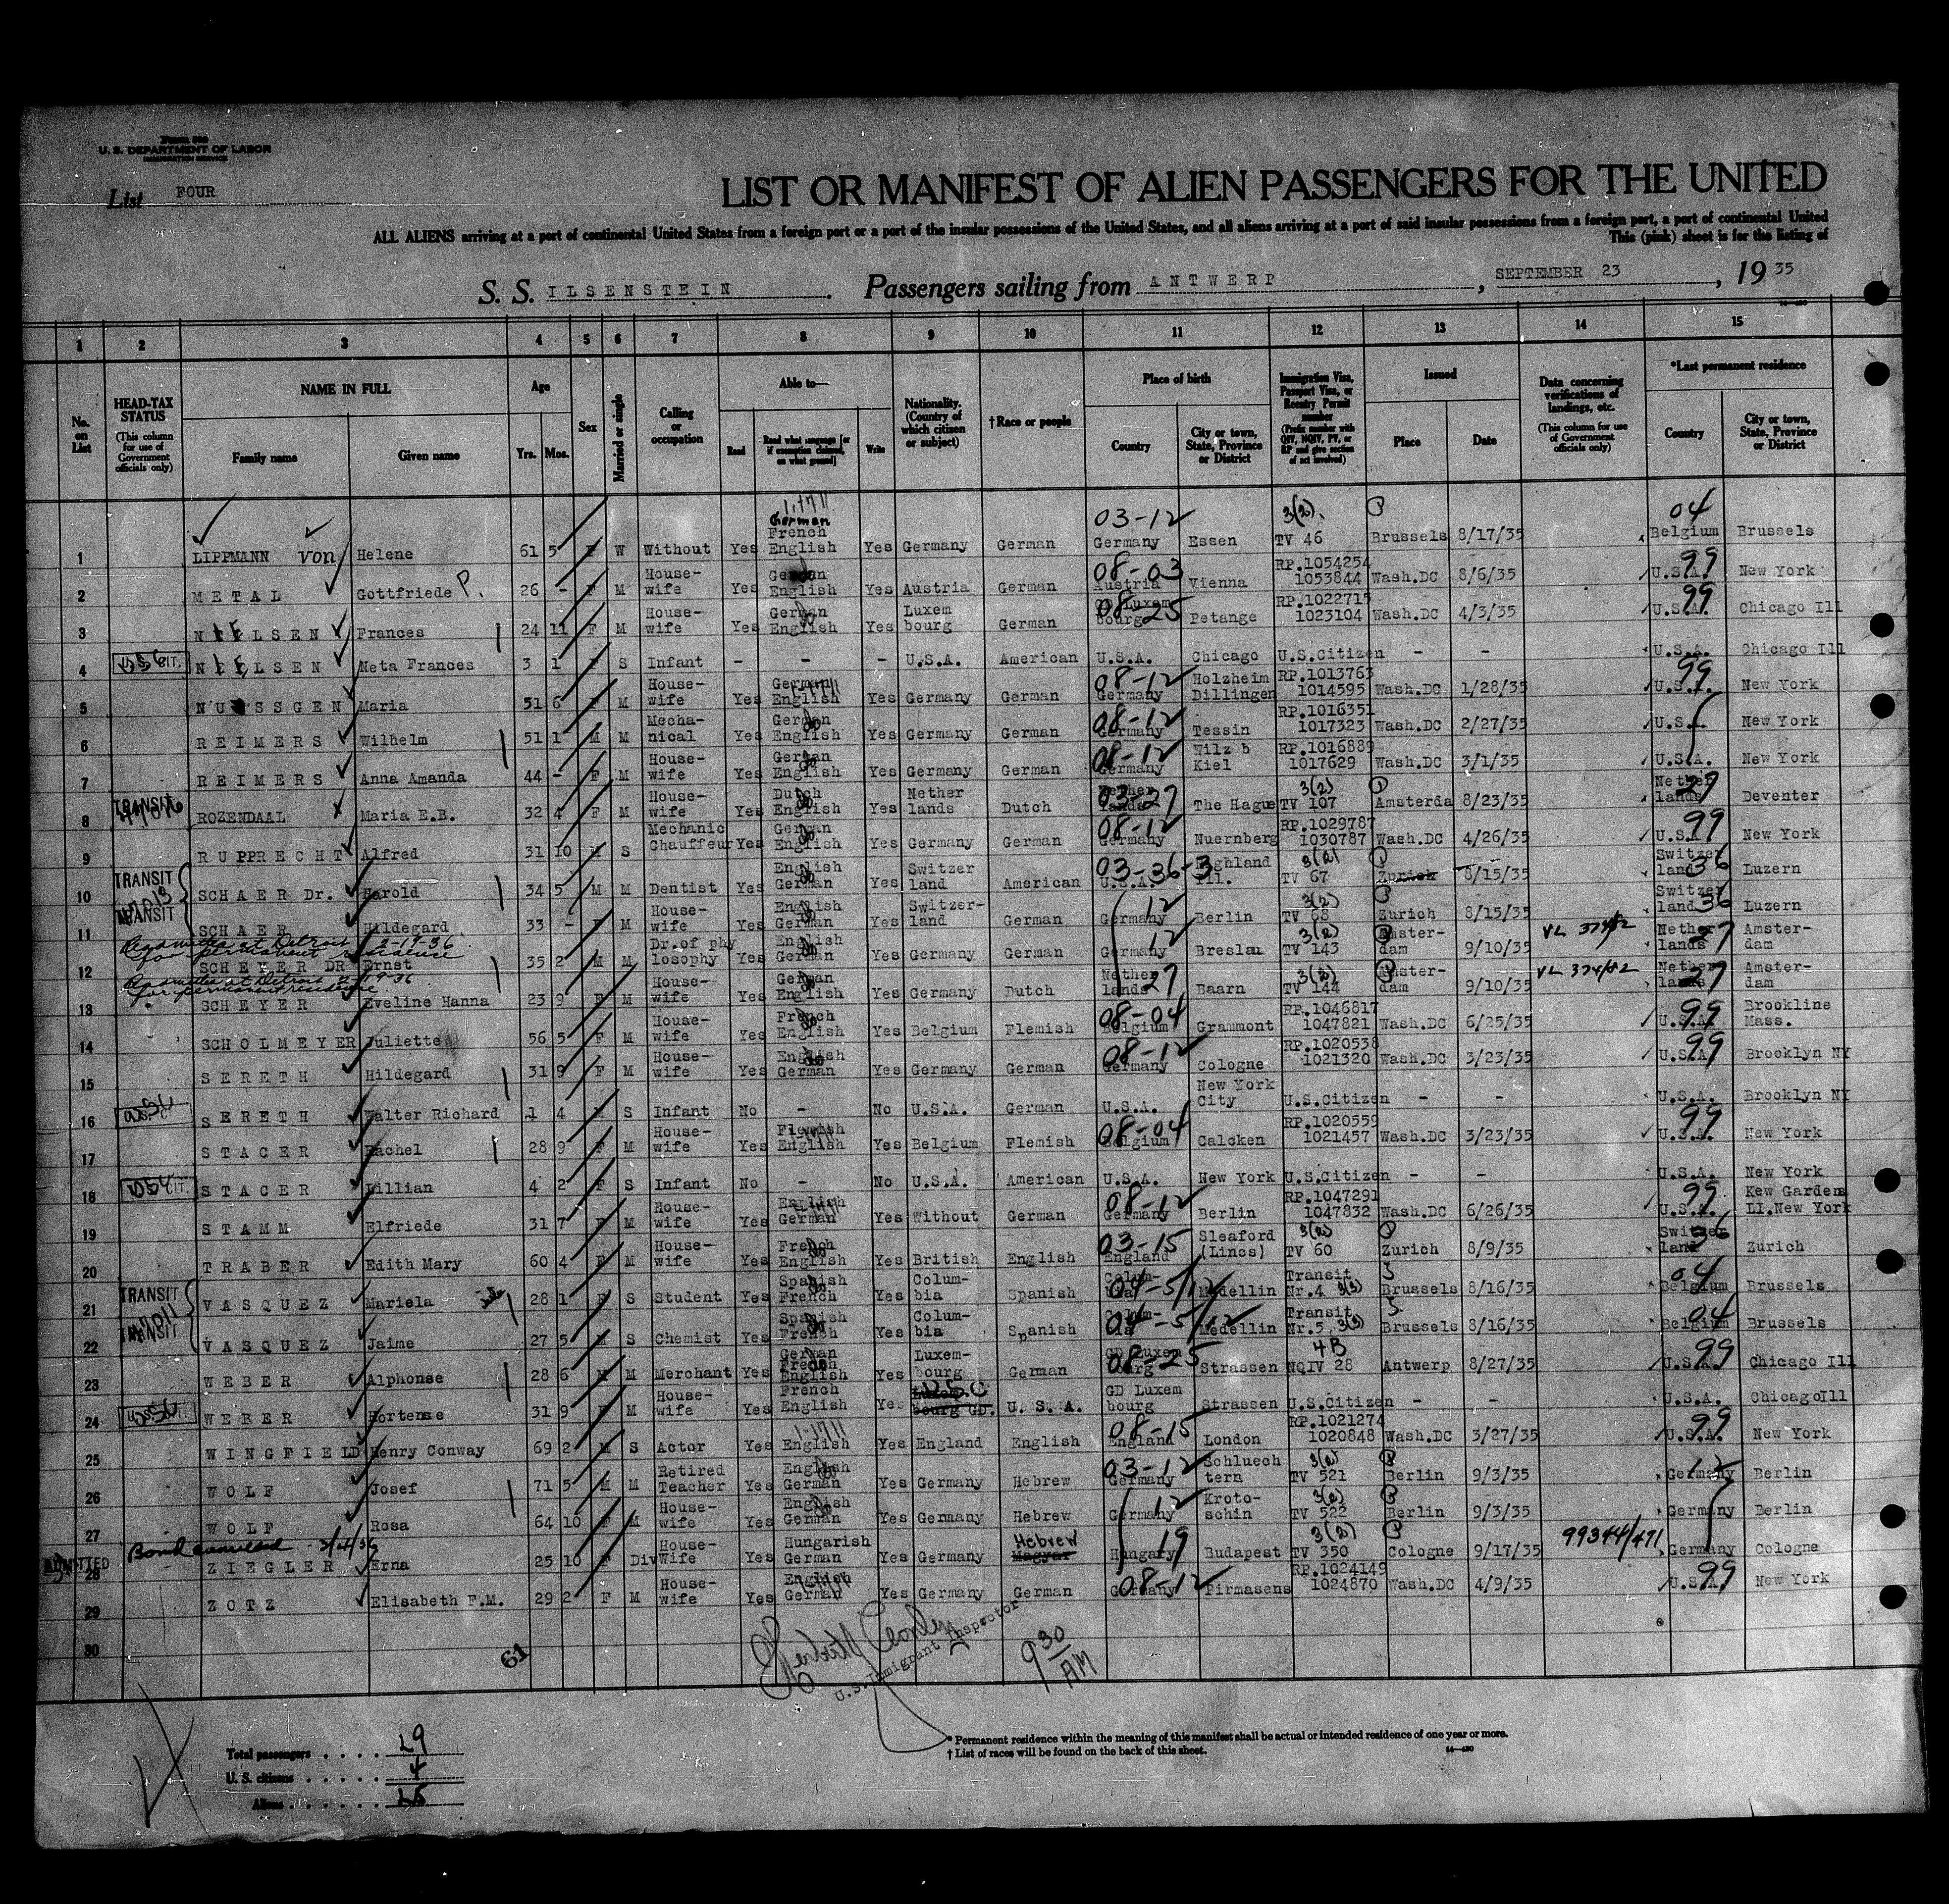 Form 500
U. S. DEPARTMENT OF LABOR
IMMIGRATION SERVICE
List FOUR
LIST OR MANIFEST OF ALIEN PASSENGERS FOR THE UNITED
ALL ALIENS arriving at a port of continental United States from a foreign port or a port of the insular possessions of the United States, and all aliens arriving at a port of said insular possessions from a foreign port, a port of continental United
This (pink) sheet is for the listing of
S. S. ILSENSTEIN . Passengers sailing from ANTWERP , SEPTEMBER 23 , 19 35
1 2 3 4 5 6 7 8 9 10 11 12 13 14 15
No. on List
HEAD-TAX STATUS (This column for use of Government officials only)
NAME IN FULL
Family name Given name
Age Yrs. Mos.
Sex
Married or single
Calling or occupation
Able to—
Read Read what language [or if exemption claimed, on what ground] Write
Nationality. (Country of which citizen or subject)
†Race or people
Place of birth
Country City or town, State, Province or District
Immigration Visa, Passport Visa, or Reentry Permit number (Prefix number with QIV, NQIV, PV, or RP and give section of act involved)
Issued
Place Date
Data concerning verifications of landings, etc. (This column for use of Government officials only)
*Last permanent residence
Country City or town, State, Province or District
1 LIPPMANN von Helene 61 5 F W Without Yes German French English Yes Germany German 03-12 Germany Essen 3(2) TV 46 Brussels 8/17/35 04 Belgium Brussels
2 METAL Gottfriede P. 26 - F M House-wife Yes German English Yes Austria German 08-03 Austria Vienna RP.1054254 1053844 Wash.DC 8/6/35 99 U.S.A. New York
3 NIELSEN Frances 24 11 F M House-wife Yes German English Yes Luxem bourg German 08-25 GD Luxem bourg Petange RP.1022715 1023104 Wash.DC 4/3/35 99 U.S.A. Chicago Ill
4 NIELSEN Meta Frances 3 1 F S Infant - - - U.S.A. American U.S.A. Chicago U.S.Citizen - - U.S.A. Chicago Ill
5 NUSSGEN Maria 51 6 F M House-wife Yes German English Yes Germany German 08-12 Germany Holzheim Dillingen RP.1013763 1014595 Wash.DC 1/28/35 99 U.S.A. New York
6 REIMERS Wilhelm 51 1 M M Mecha-nical Yes German English Yes Germany German 08-12 Germany Tessin RP.1016351 1017323 Wash.DC 2/27/35 U.S.A. New York
7 REIMERS Anna Amanda 44 - F M House-wife Yes German English Yes Germany German 08-12 Germany Wilz b Kiel RP.1016889 1017629 Wash.DC 3/1/35 U.S.A. New York
8 TRANSIT ROZENDAAL Maria E.B. 32 4 F M House-wife Yes Dutch English Yes Nether lands Dutch 03-27 Nether lands The Hague 3(2) TV 107 Amsterda 8/23/35 27 Nether lands Deventer
9 RUPPRECHT Alfred 31 10 M S Mechanic Chauffeur Yes German English Yes Germany German 08-12 Germany Nuernberg RP.1029787 1030787 Wash.DC 4/26/35 99 U.S.A. New York
10 TRANSIT SCHAER Dr. Harold 34 5 M M Dentist Yes English German Yes Switzer land American 03-36-3 U.S.A. Highland Ill. 3(2) TV 67 Zurich 8/15/35 Switzer land 36 Luzern
11 TRANSIT SCHAER Hildegard 33 - F M House-wife Yes English German Yes Switzer-land German Germany 12 Berlin 3(2) TV 68 Zurich 8/15/35 Switzer land 36 Luzern
Readmitted at Detroit 2-19-36 for permanent residence
12 SCHEYER DR Ernst 35 2 M M Dr.of phy losophy Yes English German Yes Germany German Germany 12 Breslau 3(2) TV 143 Amster-dam 9/10/35 Nether lands 27 Amster-dam
Readmitted at Detroit 2-19-36 for permanent residence
13 SCHEYER Eveline Hanna 23 9 F M House-wife Yes German English Yes Germany Dutch Nether lands 27 Baarn 3(2) TV 144 Amster-dam 9/10/35 Nether lands 27 Amster-dam
14 SCHOLMEYER Juliette 56 5 F M House-wife Yes French English Yes Belgium Flemish 08-04 Belgium Grammont RP.1046817 1047821 Wash.DC 6/25/35 99 U.S.A. Brookline Mass.
15 SERETH Hildegard 31 9 F M House-wife Yes English German Yes Germany German 08-12 Germany Cologne RP.1020538 1021320 Wash.DC 3/23/35 99 U.S.A. Brooklyn NY
16 SERETH Walter Richard 1 4 M S Infant No - No U.S.A. German U.S.A. New York City U.S.Citizen - - U.S.A. Brooklyn NY
17 STACER Rachel 28 9 F M House-wife Yes Flemish English Yes Belgium Flemish 08-04 Belgium Calcken RP.1020559 1021457 Wash.DC 3/23/35 99 U.S.A. New York
18 STACER Lillian 4 2 F S Infant No - No U.S.A. American U.S.A. New York U.S.Citizen - - U.S.A. New York
19 STAMM Elfriede 31 7 F M House-wife Yes English German Yes Without German 08-12 Germany Berlin RP.1047291 1047832 Wash.DC 6/26/35 99 U.S.A. Kew Gardens LI.New York
20 TRABER Edith Mary 60 4 F M House-wife Yes French English Yes British English 03-15 England Sleaford (Lincs) 3(2) TV 60 Zurich 8/9/35 Switzer land 36 Zurich
21 TRANSIT VASQUEZ Mariela 28 1 F S Student Yes Spanish French Yes Colum-bia Spanish 04-5/12 Colum-bia Medellin Transit Nr.4 3(3) Brussels 8/16/35 04 Belgium Brussels
22 TRANSIT VASQUEZ Jaime 27 5 M S Chemist Yes Spanish French Yes Colum-bia Spanish 04-5/12 Colum-bia Medellin Transit Nr.5 3(3) Brussels 8/16/35 04 Belgium Brussels
23 WEBER Alphonse 28 6 M M Merchant Yes German French English Yes Luxem-bourg German 08-25 GD Luxem bourg Strassen 4B NQIV 28 Antwerp 8/27/35 99 U.S.A. Chicago Ill
24 WEBER Hortense 31 9 F M House-wife Yes French English Yes U.S.C. Luxem-bourg GD. U.S.A. GD Luxem bourg Strassen U.S.Citizen - - U.S.A. Chicago Ill
25 WINGFIELD Henry Conway 69 2 M S Actor Yes English Yes England English 08-15 England London RP.1021274 1020848 Wash.DC 3/27/35 99 U.S.A. New York
26 WOLF Josef 71 5 M M Retired Teacher Yes English German Yes Germany Hebrew 03-12 Germany Schluech tern 3(2) TV 521 Berlin 9/3/35 12 Germany Berlin
27 WOLF Rosa 64 10 F M House-wife Yes English German Yes Germany Hebrew Germany 12 Kroto-schin 3(2) TV 522 Berlin 9/3/35 Germany Berlin
Bond cancelled
28 ADMITTED ZIEGLER Erna 25 10 F Div House-Wife Yes Hungarish German Yes Germany Hebrew Magyar Hungary 19 Budapest 3(2) TV 350 Cologne 9/17/35 99344/471 Germany Cologne
29 ZOTZ Elisabeth F.M. 29 2 F M House-wife Yes English German Yes Germany German 08-12 Germany Pirmasens RP.1024149 1024870 Wash.DC 4/9/35 99 U.S.A. New York
30
61
U.S. Immigrant Inspector
9 30 AM
Total passengers . . . . 29
U. S. citizens . . . . . 4
Aliens . . . . . . 25
* Permanent residence within the meaning of this manifest shall be actual or intended residence of one year or more.
† List of races will be found on the back of this sheet.
14—430